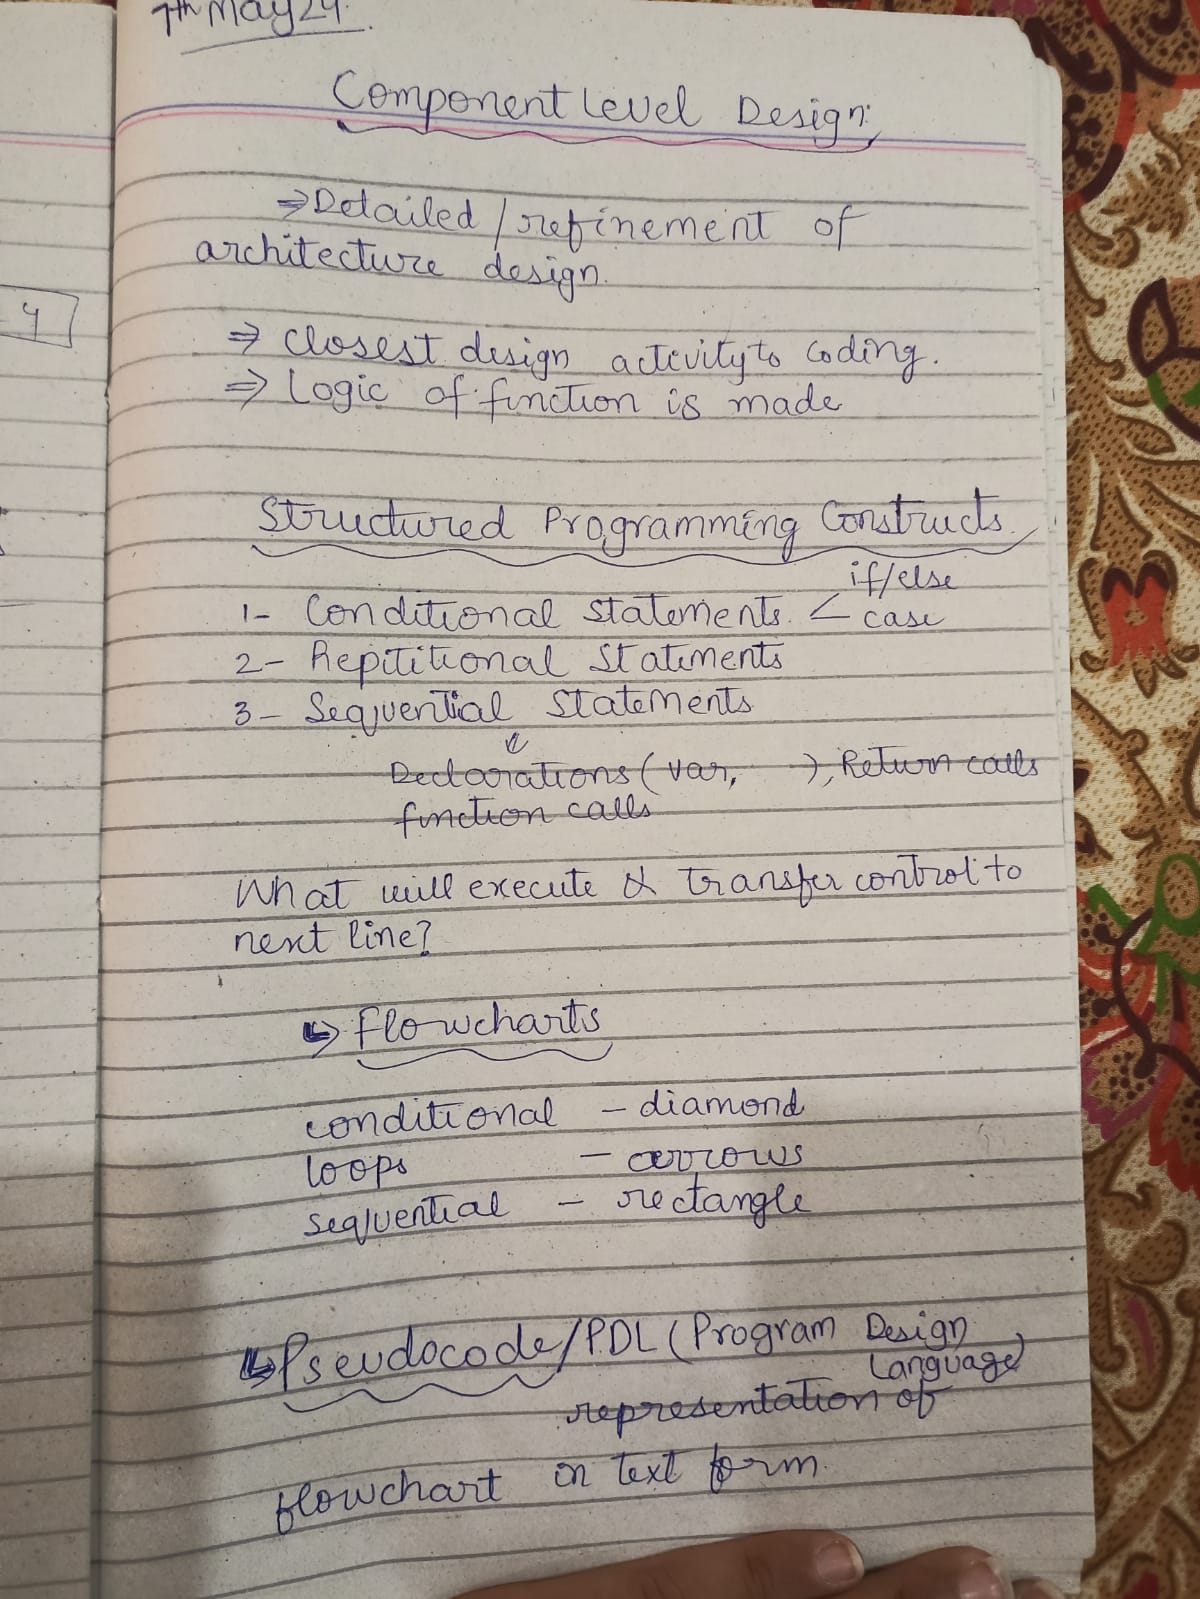 7th May 24.
Component Level Design:
⇒ Detailed / refinement of
architecture design.
4
⇒ Closest design activity to coding.
⇒ Logic of function is made
Structured Programming Constructs
if/else
1- Conditional Statements. < case
2- Repititional Statements
3- Sequential Statements
Declarations ( var, ), Return calls
function calls
What will execute & transfer control to
next line?
↳ Flowcharts
conditional - diamond
loops - arrows
sequential - rectangle
↳ Pseudocode / PDL ( Program Design
Language)
representation of
flowchart in text form.